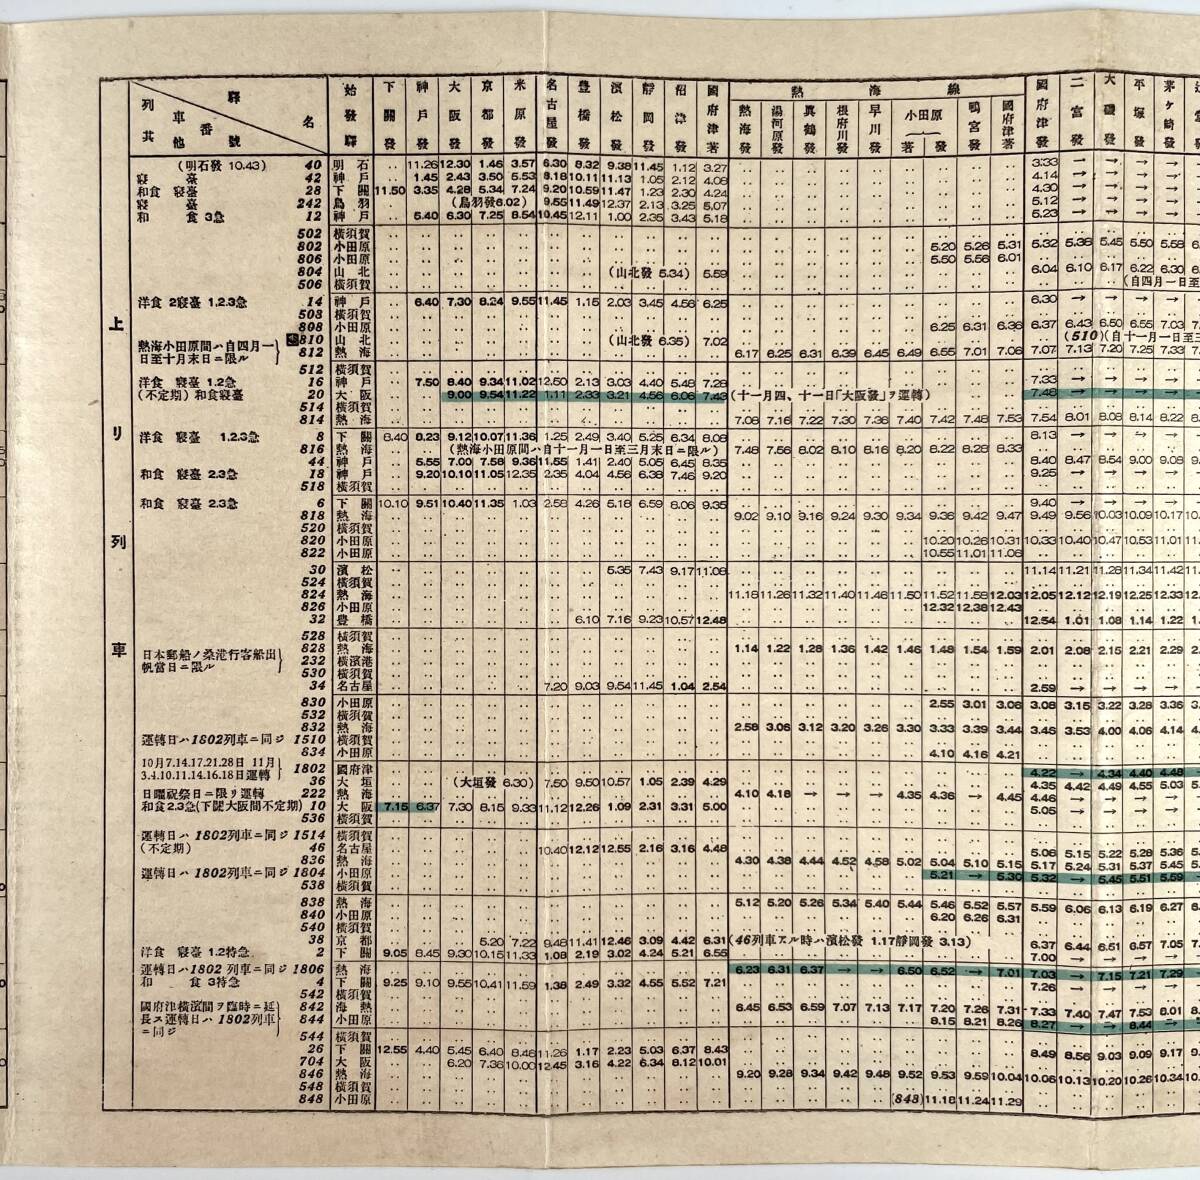 驛名 列車番號 其他 始發驛 下關發 神戶發 大阪發 京都發 米原發 名古屋發 豊橋發 濱松發 靜岡發 沼津發 國府津著 熱海線 熱海發 湯河原發 眞鶴發 根府川發 早川發 小田原著 發 鴨宮發 國府津著 國府津發 二宮發 大磯發 平塚發 茅ケ崎發
上リ列車
(明石發 10.43) 40 明石 ‥ 11.26 12.30 1.46 3.57 6.30 8.32 9.38 11.45 1.12 3.27 3.33 → → → →
寢臺 42 神戶 ‥ 1.45 2.43 3.50 5.53 8.18 10.11 11.13 1.05 2.12 4.08 4.14 → → → →
和食 寢臺 28 下關 11.50 3.35 4.28 5.34 7.24 9.20 10.59 11.47 1.23 2.30 4.24 4.30 → → → →
寢臺 242 鳥羽 (鳥羽發6.02) 9.55 11.49 12.37 2.13 3.25 5.07 5.12 → → → →
和食 3急 12 神戶 ‥ 5.40 6.30 7.25 8.54 10.45 12.11 1.00 2.35 3.43 5.18 5.23 → → → →
502 橫須賀
802 小田原 5.20 5.26 5.31 5.32 5.38 5.45 5.50 5.58
806 小田原 5.50 5.56 6.01
804 山北 (山北發 5.34) 5.59 6.04 6.10 6.17 6.22 6.30
506 橫須賀 (自四月一日至
洋食 2寢臺 1.2.3急 14 神戶 ‥ 6.40 7.30 8.24 9.55 11.45 1.15 2.03 3.45 4.56 6.25 6.30 → → → →
508 橫須賀
808 小田原 6.25 6.31 6.36 6.37 6.43 6.50 6.55 7.03
810 山北 (山北發 6.35) 7.02 (510)(自十一月一日至三
熱海小田原間ハ自四月一日至十月末日ニ限ル 812 熱海 6.17 6.25 6.31 6.39 6.45 6.49 6.55 7.01 7.06 7.07 7.13 7.20 7.25 7.33
512 橫須賀
洋食 寢臺 1.2急 16 神戶 ‥ 7.50 8.40 9.34 11.02 12.50 2.13 3.03 4.40 5.48 7.28 7.33 → → → →
(不定期) 和食寢臺 20 大阪 9.00 9.54 11.22 1.11 2.33 3.21 4.56 6.06 7.43 (十一月四、十一日「大阪發」ヲ運轉) 7.48 → → → →
514 橫須賀
814 熱海 7.08 7.16 7.22 7.30 7.36 7.40 7.42 7.48 7.53 7.54 8.01 8.08 8.14 8.22
洋食 寢臺 1.2.3急 8 下關 8.40 8.23 9.12 10.07 11.36 1.25 2.49 3.40 5.25 6.34 8.08 8.13 → → → →
816 熱海 (熱海小田原間ハ自十一月一日至三月末日ニ限ル) 7.48 7.56 8.02 8.10 8.16 8.20 8.22 8.28 8.33
44 神戶 ‥ 5.55 7.00 7.58 9.36 11.55 1.41 2.40 5.05 6.45 8.35 8.40 8.47 8.54 9.00 9.08
和食 寢臺 2.3急 18 神戶 ‥ 9.20 10.10 11.05 12.35 2.35 4.04 4.56 6.38 7.46 9.20 9.25 → → → →
518 橫須賀
和食 寢臺 2.3急 6 下關 10.10 9.51 10.40 11.35 1.03 2.58 4.26 5.18 6.59 8.06 9.35 9.40 → → → →
818 熱海 9.02 9.10 9.16 9.24 9.30 9.34 9.36 9.42 9.47 9.49 9.56 10.03 10.09 10.17
520 橫須賀
820 小田原 10.20 10.26 10.31 10.33 10.40 10.47 10.53 11.01
822 小田原 10.55 11.01 11.06
30 濱松 5.35 7.43 9.17 11.08 11.14 11.21 11.28 11.34 11.42
524 橫須賀
824 熱海 11.18 11.26 11.32 11.40 11.46 11.50 11.52 11.58 12.03 12.05 12.12 12.19 12.25 12.33
826 小田原 12.32 12.38 12.43
32 豊橋 6.10 7.16 9.23 10.57 12.48 12.54 1.01 1.08 1.14 1.22
528 橫須賀
日本郵船ノ桑港行客船出帆當日ニ限ル 828 熱海 1.14 1.22 1.28 1.36 1.42 1.46 1.48 1.54 1.59 2.01 2.08 2.15 2.21 2.29
232 橫濱港
530 橫須賀
34 名古屋 7.20 9.03 9.54 11.45 1.04 2.54 2.59 → → → →
830 小田原 2.55 3.01 3.06 3.08 3.15 3.22 3.28 3.36
532 橫須賀
832 熱海 2.58 3.06 3.12 3.20 3.26 3.30 3.33 3.39 3.44 3.46 3.53 4.00 4.06 4.14
運轉日ハ1802列車ニ同ジ 1510 橫須賀
834 小田原 4.10 4.16 4.21
10月7.14.17.21.28日 11月3.4.10.11.14.16.18日運轉 1802 國府津 4.22 → 4.34 4.40 4.48
36 大垣 (大垣發 6.30) 7.50 9.50 10.57 1.05 2.39 4.29 4.35 4.42 4.49 4.55 5.03
日曜祝祭日ニ限リ運轉 222 熱海 4.10 4.18 → → → 4.35 4.36 → 4.45 4.46 → → → →
和食2.3急(下關大阪間不定期) 10 大阪 7.15 6.37 7.30 8.15 9.33 11.12 12.26 1.09 2.31 3.31 5.00 5.05 → → → →
536 橫須賀
運轉日ハ1802列車ニ同ジ 1514 橫須賀
(不定期) 46 名古屋 10.40 12.12 12.55 2.16 3.16 4.48 5.06 5.15 5.22 5.28 5.36
836 熱海 4.30 4.38 4.44 4.52 4.58 5.02 5.04 5.10 5.15 5.17 5.24 5.31 5.37 5.45
運轉日ハ1802列車ニ同ジ 1804 小田原 5.21 → 5.30 5.32 → 5.45 5.51 5.59
538 橫須賀
838 熱海 5.12 5.20 5.26 5.34 5.40 5.44 5.46 5.52 5.57 5.59 6.06 6.13 6.19 6.27
840 小田原 6.20 6.26 6.31
540 橫須賀
38 京都 5.20 7.22 9.48 11.41 12.46 3.09 4.42 6.31 (46列車アル時ハ濱松發 1.17靜岡發 3.13) 6.37 6.44 6.51 6.57 7.05
洋食 寢臺 1.2特急 2 下關 9.05 8.45 9.30 10.15 11.33 1.08 2.19 3.02 4.24 5.21 6.55 7.00 → → → →
運轉日ハ1802 列車ニ同ジ 1806 熱海 6.23 6.31 6.37 → → 6.50 6.52 → 7.01 7.03 → 7.15 7.21 7.29
和食 3特急 4 下關 9.25 9.10 9.55 10.41 11.59 1.38 2.49 3.32 4.55 5.52 7.21 7.26 → → → →
542 橫須賀
國府津橫濱間ヲ臨時ニ延長ス運轉日ハ1802列車ニ同ジ 842 海熱 6.45 6.53 6.59 7.07 7.13 7.17 7.20 7.26 7.31 7.33 7.40 7.47 7.53 8.01
844 小田原 8.15 8.21 8.26 8.27 → → 8.44 →
544 橫須賀
26 下關 12.55 4.40 5.45 6.40 8.46 11.26 1.17 2.23 5.03 6.37 8.43 8.49 8.56 9.03 9.09 9.17
704 大阪 6.20 7.36 10.00 12.45 3.16 4.22 6.34 8.12 10.01
846 熱海 9.20 9.28 9.34 9.42 9.48 9.52 9.53 9.59 10.04 10.06 10.13 10.20 10.26 10.34
548 橫須賀
848 小田原 (848) 11.18 11.24 11.29